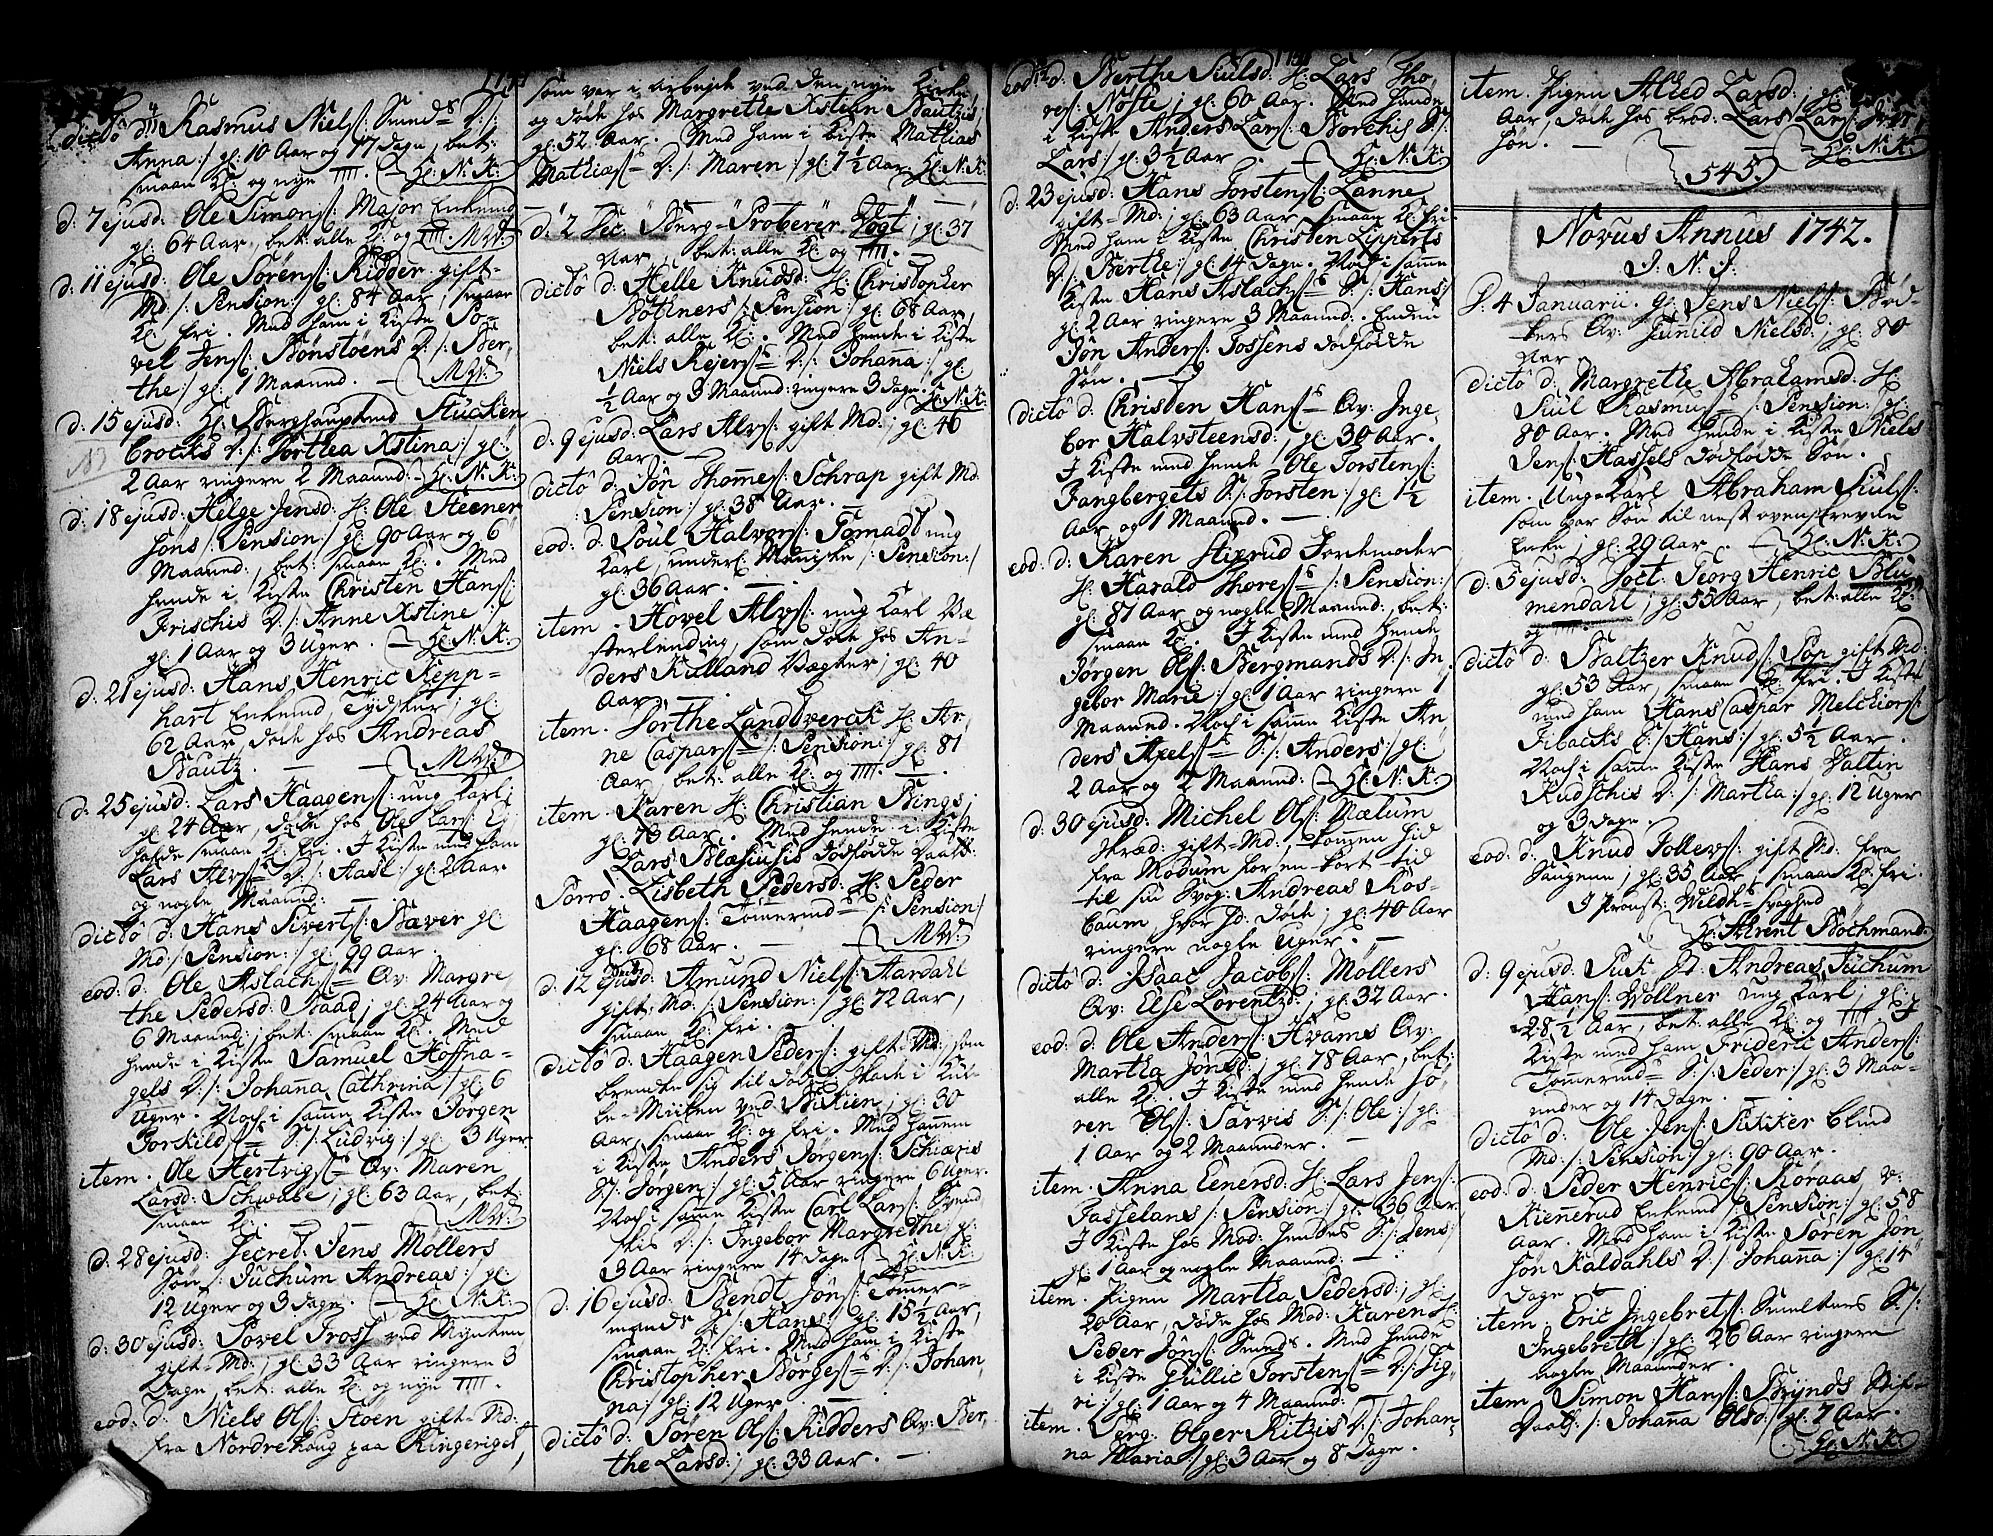 1741
dictô d. Rasmus Niels: Smeds D:/:
Anna:/ gl: 10 Aar og 17 dage, bet:
smaae Kl: og nye IIII. H: N: K:
d: 7 ejusd: Ole Simons: Major Enkemd
gl: 64 Aar, bet: alle Kl: og IIII. MW:
d: 11 ejusd: Ole Sørens: Ridder gift-
Md:/: Pension:/ gl: 84 Aar, smaae
Kl: fri. Med ham i Kiste Po-
vel Jens: Bønstøens D:/: Ber,
the:/ gl: 1 Maaned. MW:
d: 15 ejusd: H: Berghauptmd Stücken
brocks D:/: Dorthea Xstina:/ gl:
2 Aar ringere 2 Maaned. H: N: K:
d: 18 ejusd: Helge Jensd: H: Ole Steener
sons:/: Pension:/ gl: 90 Aar og 6
Maaned:, bet: smaae Kl:. Med
hende i Kiste Christen Hans:
Frischis D:/: Anne Xstine:/
gl: 1 Aar og 3 Uger. H: N: K:
d: 21 ejusd: Hans Henric Kepp-
hart Enkemd Tydsker, gl:
62 Aar, døde hos Andreas
Bautz. MW:
d: 25 ejusd: Lars Haagens: ung Karl;
gl: 24 Aar, døde hos Ole Lars:
smaae Kl: fri. I Kiste med ham
Lars Alvs: D:/: Aase:/ gl: 2 Aar
og nogle Maaned:
dictô d: Hans Sivert: Bæver gl:
Md:/: Pension:/ gl: 99 Aar.
eod: d: Ole Aslachs: Qv: Margre,
the Pedersd: Raad; gl: 24 Aar og
6 Maaned:, bet: smaae Kl:. Med
hende i Kiste Samuel Hoffna-
gels D:/: Johana Cathrina:/ gl: 6
Uger. Noch i samme Kiste Jörgen
Torkilds: S:/: Ludvig:/ gl: 3 Uger
item. Ole Hertvigs: Qv: Maren
Larsd: Schwabe, gl: 63 Aar, bet:
smaae Kl: MW:
d: 28 ejusd: Secret: Jens Möllers
Søn:/: Juchum Andreas:/ gl:
12 Uger og 3 dage. H: N: K:
d: 30 ejusd: Povel Tross ved Mynten
gift-Md:, gl: 33 Aar ringere 3
Dage, bet: alle Kl: og nye IIII.
eod: d: Niels Ols: Støen gift-Md:
fra Nordrehoug paa Ringeriget,
som var i arbejde ved den nye Kirke,
og døde hos Margrethe Xstian Bautzis,
gl: 52 Aar. Med ham i Kiste Mathias
Mathias: D:/: Maren:/ gl: 7½ Aar. H: N: K:
d: 2 Dec: Berg-Proberer Vogt; gl: 37
Aar, bet: alle Kl: og IIII.
dictô d: Helle Knudsd: H: Christopher
Böttners:/: Pension:/ gl: 68 Aar,
bet: alle Kl:. Med hende i Kiste
Niels Rejers: D:/: Johana:/ gl:
½ Aar og 3 Maaned: ringere 3 dage. H: N: K:
d: 9 ejusd: Lars Alvs: gift Md:, gl: 46
Aar.
dictô d: Jøn Thomes: Schrap gift Md
:Pension:/ gl: 38 Aar.
eod: d: Poül Halvors: Fomaas ung
Karl, underl: Menniske:/: Pension:/
gl: 36 Aar.
item. Hovel Alvs: ung Karl Ve
sterlending, som døde hos An-
ders Kulland Vægter; gl: 40
Aar.
item. Dorthe Landsverck H: Ar,
ne Caspars:/: Pension:/ gl: 81
Aar, bet: alle Kl: og IIII.
item. Karen H: Christian Bings;
gl: 73 Aar. Med hende i Kiste
Lars Blæsiusis dødfødde Daatt:
Porro. Lisbeth Pedersd: H: Peder
Haagens: Tømermd:/: Pension:/
gl: 68 Aar. MW:
d: 12 ejusd: Amund Niels: Aardahl
gift-Md:/: Pension:/ gl: 72 Aar,
smaae Kl: fri.
dictô d: Haagen Peders: gift-Md: som
brendte sig til døde i Kul-
le-Miilen ved Bickien; gl: 30
Aar, smaae Kl: og fri. Med hannem
i Kiste Anders Jörgens: Schiæris
S:/: Jörgen:/ gl: 5 Aar ringere 6 Uger.
Noch i samme Kiste Carl Lars:
skis D:/: Ingebor Margrethe:/ gl:
3 Aar ringere 14 Dage. H: N: K:
d: 16 ejusd: Bendt Jøns: Tömer-
mands S:/: Hans:/ gl: 15½ Aar,
smaae Kl: fri. Med ham i Kiste
Christopher Börges: D:/: Johan,
na:/ gl: 12 Uger.
dictô d: Søren Ols: Ridders Qv: Ber,
the Larsd:, gl: 33 Aar.
1741
eod: d: Berthe Siulsd: H: Lars Tho,
res: Nöste; gl: 60 Aar. Med hende
i Kiste Anders Lars: Borchis S:
Lars:/ gl: 3½ Aar. H: N: K:
d: 23 ejusd: Hans Torstens: Lanne
gift-Md:, gl: 63 Aar smaae Kl: fri.
Med ham i Kiste Christen Lipperts
D:/: Berthe:/ gl: 14 Dage. Noch i same
Kiste Hans Aslachs: S:/: Hans:/
gl: 2 Aar ringere 3 Maaned:. Endnu
Jøn Anders: Fossens dødfødde
Søn.
dictô d: Christen Hans: Qv: Inge,
bor Halvsteensd:, gl: 30 Aar.
I Kiste med hende Ole Torstens:
Fangbergets S:/: Torsten:/ gl: 1½
Aar og 1 Maaned.
eod: d: Karen Stixrud Jordemoder
H: Harald Thores:/: Pension:/
gl: 81 Aar og nogle Maaned:, bet:
smaae Kl:. I Kiste med hende
Jørgen Ols: Bergmands D:/: In,
gebor Marie:/ gl: 1 Aar ringere 1
Maaned. Noch i samme Kiste An,
ders Axels: S:/: Anders:/ gl:
2 Aar og 2 Maaned: H: N: K:
d: 30 ejusd: Michel Ols: Mælum
skræd: gift-Md:, kommen hid
fra Modum for en kort tid
til sin Svog: Andreas Ros-
baum, hvor hd: døde; gl: 40 Aar
ringere nogle Uger.
dictô d: Isaac Jacobs: Møllers
Qv: Else Lorentzd:, gl: 32 Aar.
eod: d: Ole Anders: Hvams Qv:
Martha Jönsd:, gl: 78 Aar, bet:
alle Kl:. I Kiste med hende Sö,
ren Ols: Sarvis S:/: Ole:/ gl:
1 Aar og 2 Maaneder.
item. Anna Eenersd: H: Lars Jens:
Fasselans:/: Pension:/ gl: 36 Aar.
I Kiste hos Mod: hendes S:/: Jens:/
gl: 1 Aar og nogle Maaned:
item. Pigen Martha Pedersd:, gl:
20 Aar, døde hos Mod: Karen H:
Peder Jöns: Smeds. Med hende
i Kiste Gullic Torstens: D:/: Sig,
ri:/ gl: 1 Aar og 4 Maaned:
item. Serg: Olger Ritzis D:/: Johan-
na Maria:/ gl: 3 Aar og 8 Dage.
item. Pigen Alhed Larsd:, gl:
Aar, døde hos brod: Lars Lars:
søn. H: N: K:
545.
Novus Annus 1742.
I: N: J:
d: 4 Januarii. gl: Jens Niels: Bød-
kers Qv: Gunild Nielsd:, gl: 80
Aar.
dictô d: Margrethe Abrahamsd: H:
Siul Rasmus:/: Pension:/ gl:
80 Aar. Med hende i Kiste Niels
Jens: Hassels dødfødde Søn.
item. Ung-Karl Abraham Siuls:
som var Søn til nest ovenskrevne
Enke; gl: 29 Aar. H: N: K:
d: 5 ejusd: Doct: Georg Henric Blu
mendahl; gl: 55 Aar, bet: alle Kl:
og IIII.
dictô d: Baltzer Knuds: Pöp gift Md:
gl: 53 Aar, smaae Kl: fri. I Kiste
med ham Hans Caspar Melchiors:
Fibacks S:/: Hans:/ gl: 5½ Aar.
Noch i samme Kiste Hans Valtin
Kudschis D:/: Martha:/ gl: 12 Uger
og 3 Dage.
eod: d: Knud Tollevs: gift Md: fra
Saugene, gl: 35 Aar, smaae Kl: fri.
I Provst: Wildhs svaghed
H: Ahrent Bochmand.
d: 9 ejusd: Andreas Juchum
Hans: Wöllner ung Karl; gl:
28½ Aar, bet: alle Kl: og IIII. I
Kiste med ham Frideric Anders:
Tømermds S:/: Peder:/ gl: 3 Maa-
neder og 14 Dage.
dictô d: Ole Jens: Sukker blind
Md:/: Pension:/ gl: 90 Aar.
eod: d: Peder Henrics: Røraas, v:
Kienerud Enkemd:/: Pension:/ gl: 58
Aar. Med ham i Kiste Sören Jon
son Kaldahls D:/: Johana:/ gl: 14
Dage.
item. Eric Ingebrets: Smelters S:/:
Ingebreth:/ gl: 26 Aar ringere
nogle Maaneder.
item. Simon Hans: Brynds Stif-
Daatt:/: Johana Olsd:/ gl: 7 Aar.
H: N: K: